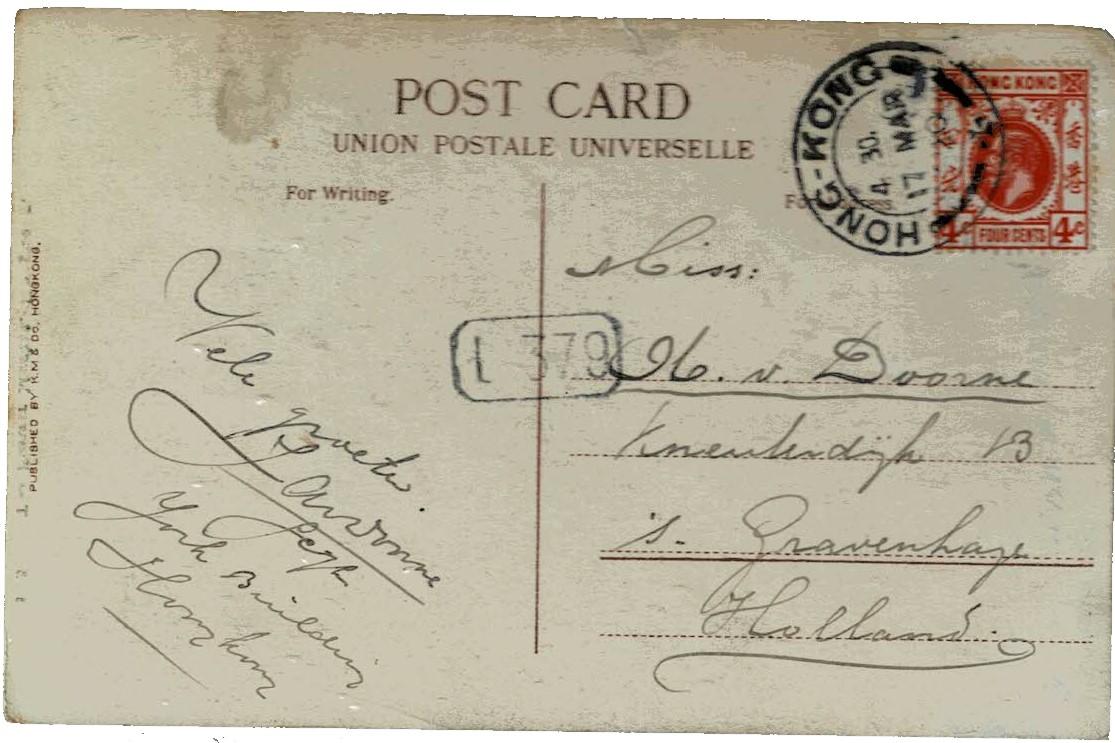 POST CARD
UNION POSTALE UNIVERSELLE
For Writing.
HONG-KONG
4 30.
17 MAR
HONG KONG
香港
4c FOUR CENTS 4c
PUBLISHED BY K.M & Co. HONGKONG.
L 379
Miss:
v. Doorne
Kneuterdijk 13
's. Gravenhage
Holland.
Vele groeten
York Building
Hong kong